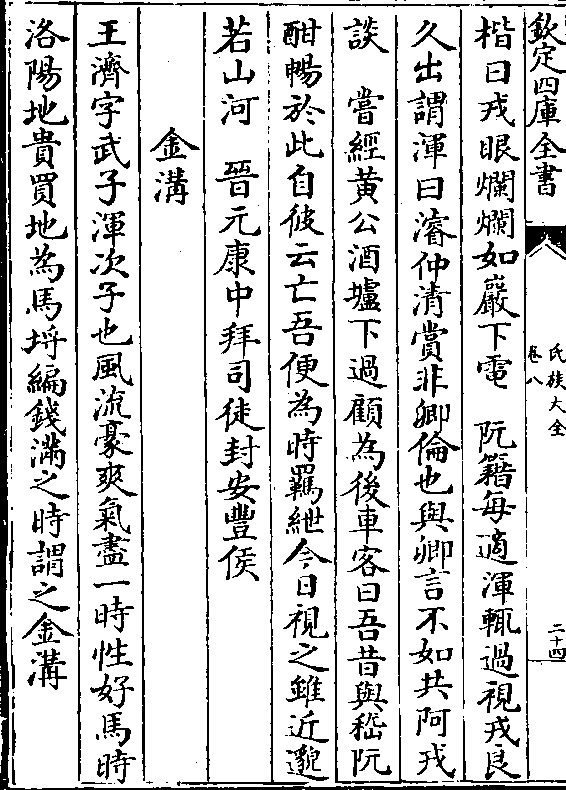 欽定四庫全書
氏族大全
卷八
二十四
楷曰戎眼爛爛如巖下電　阮籍每適渾輒過視戎良
久出謂渾曰濬仲清賞非卿倫也與卿言不如共阿戎
談　嘗經黄公酒壚下過顧為後車客曰吾昔與嵇阮
酣暢於此自彼云亡吾便為時羈紲今日視之雖近邈
若山河　晉元康中拜司徒封安豐侯
金溝
王濟字武子渾次子也風流豪爽氣盡一時性好馬時
洛陽地貴買地為馬埒編錢滿之時謂之金溝